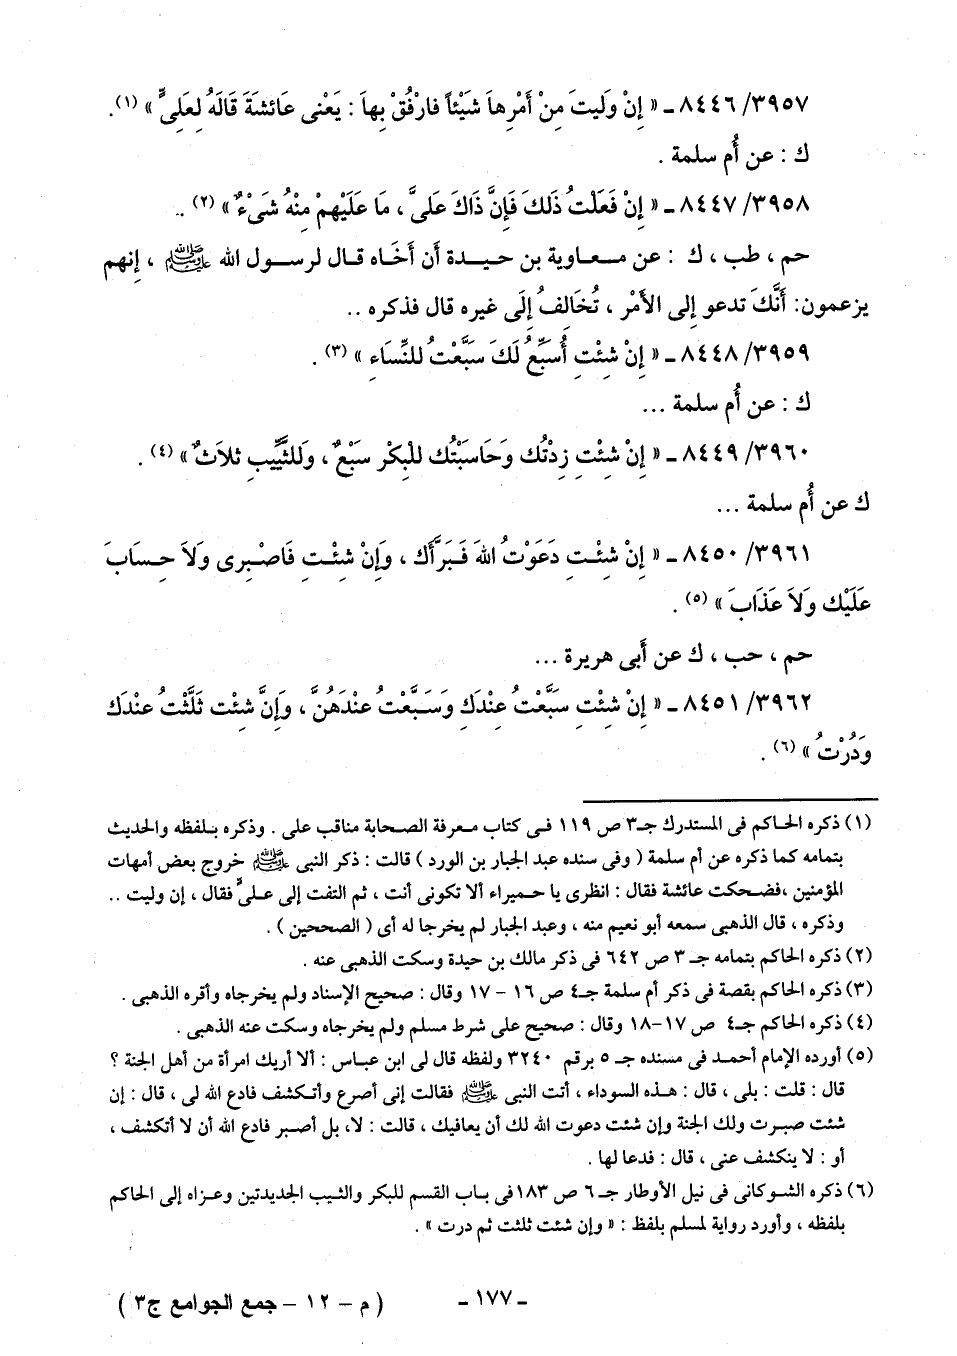 ٨٤٤٦/٣٩٥٧ ـ « إِنْ وَلِيتَ مِنْ أَمْرِهاَ شَيْئاً فارْفُقْ بِهاَ : يَعْنِى عَائشةَ قَالَهُ لِعَلىٍّ » (١).
ك : عن أُم سلمة .
٨٤٤٧/٣٩٥٨ ـ « إِنْ فَعَلْتُ ذَلكَ فَإِنَّ ذَاكَ عَلىَّ ، مَا عَلَيْهِمْ مِنْهُ شَىْءٌ » (٢) ..
حم ، طب ، ك : عن معاوية بن حيدة أن أَخَاه قال لرسول الله ﷺ ، إِنهم
يزعمون: أَنَّكَ تدعو إِلى الأَمْر ، تُخَالفُ إِلَى غيره قال فذكره ..
٨٤٤٨/٣٩٥٩ ـ « إِنْ شِئْتِ أُسَبِّعُ لَكَ سَبَّعْتُ للنِّسَاءِ » (٣) .
ك : عن أُم سلمة ...
٨٤٤٩/٣٩٦٠ ـ « إِنْ شِئْتِ زِدْتُك وحَاسَبْتُك للْبِكْرِ سَبْعٌ ، وَللثَّيِّبِ ثلاَثٌ » (٤) .
ك عن أُم سلمة ...
٨٤٥٠/٣٩٦١ ـ « إِنْ شِئْتِ دَعَوْتُ اللهَ فَبَرَّأَك ، وَإِنْ شئْتِ فَاصْبِرى وَلاَ حِسَابَ
عَلَيْكِ وَلاَ عَذَابَ » (٥) .
حم ، حب ، ك عن أَبى هريرة ...
٨٤٥١/٣٩٦٢ ـ « إِنْ شِئْتِ سَبَّعْتُ عِنْدَكِ وَسَبَّعْتُ عنْدَهُنَّ ، وَإِنَّ شئْت ثَلَّثْتُ عنْدَك
وَدُرْتُ » (٦) .
(١) ذكره الحاكم فى المستدرك جـ٣ ص ١١٩ فى كتاب معرفة الصحابة مناقب على . وذكره بلفظه والحديث
بتمامه كما ذكره عن أم سلمة ( وفى سنده عبد الجبار بن الورد ) قالت : ذكر النبى ﷺ خروج بعض أمهات
المؤمنين ،فضحكت عائشة فقال : انظرى يا حميراء ألا تكونى أنت ، ثم التفت إلى علىٍّ فقال ، إن وليت ..
وذكره ، قال الذهبى سمعه أبو نعيم منه ، وعبد الجبار لم يخرجا له أى ( الصححين ) .
(٢) ذكره الحاكم بتمامه جـ ٣ ص ٦٤٢ فى ذكر مالك بن حيدة وسكت الذهبى عنه .
(٣) ذكره الحاكم بقصة فى ذكر أم سلمة جـ٤ ص ١٦ - ١٧ وقال : صحيح الإسناد ولم يخرجاه وأقره الذهبى .
(٤) ذكره الحاكم جـ٤ ص ١٧-١٨ وقال : صحيح على شرط مسلم ولم يخرجاه وسكت عنه الذهبى .
(٥) أورده الإمام أحمد فى مسنده جـ ٥ برقم ٣٢٤٠ ولفظه قال لى ابن عباس : ألا أريك امرأة من أهل الجنة ؟
قال : قلت : بلى ، قال : هذه السوداء ، أتت النبى ﷺ فقالت إنى أصرع وأتكشف فادع الله لى ، قال : إن
شئت صبرت ولك الجنة وإن شئت دعوت الله لك أن يعافيك ، قالت : لا، بل أصبر فادع الله أن لا أتكشف ،
أو : لا ينكشف عنى ، قال : فدعا لها .
(٦) ذكره الشوكانى فى نيل الأوطار جـ ٦ ص ١٨٣فى باب القسم للبكر والثيب الجديدتين وعزاه إلى الحاكم
بلفظه ، وأورد رواية لمسلم بلفظ : « وإن شئت ثلثت ثم درت » .
ـ ١٧٧ ـ
( م - ١٢ - جمع الجوامع ج٣ )